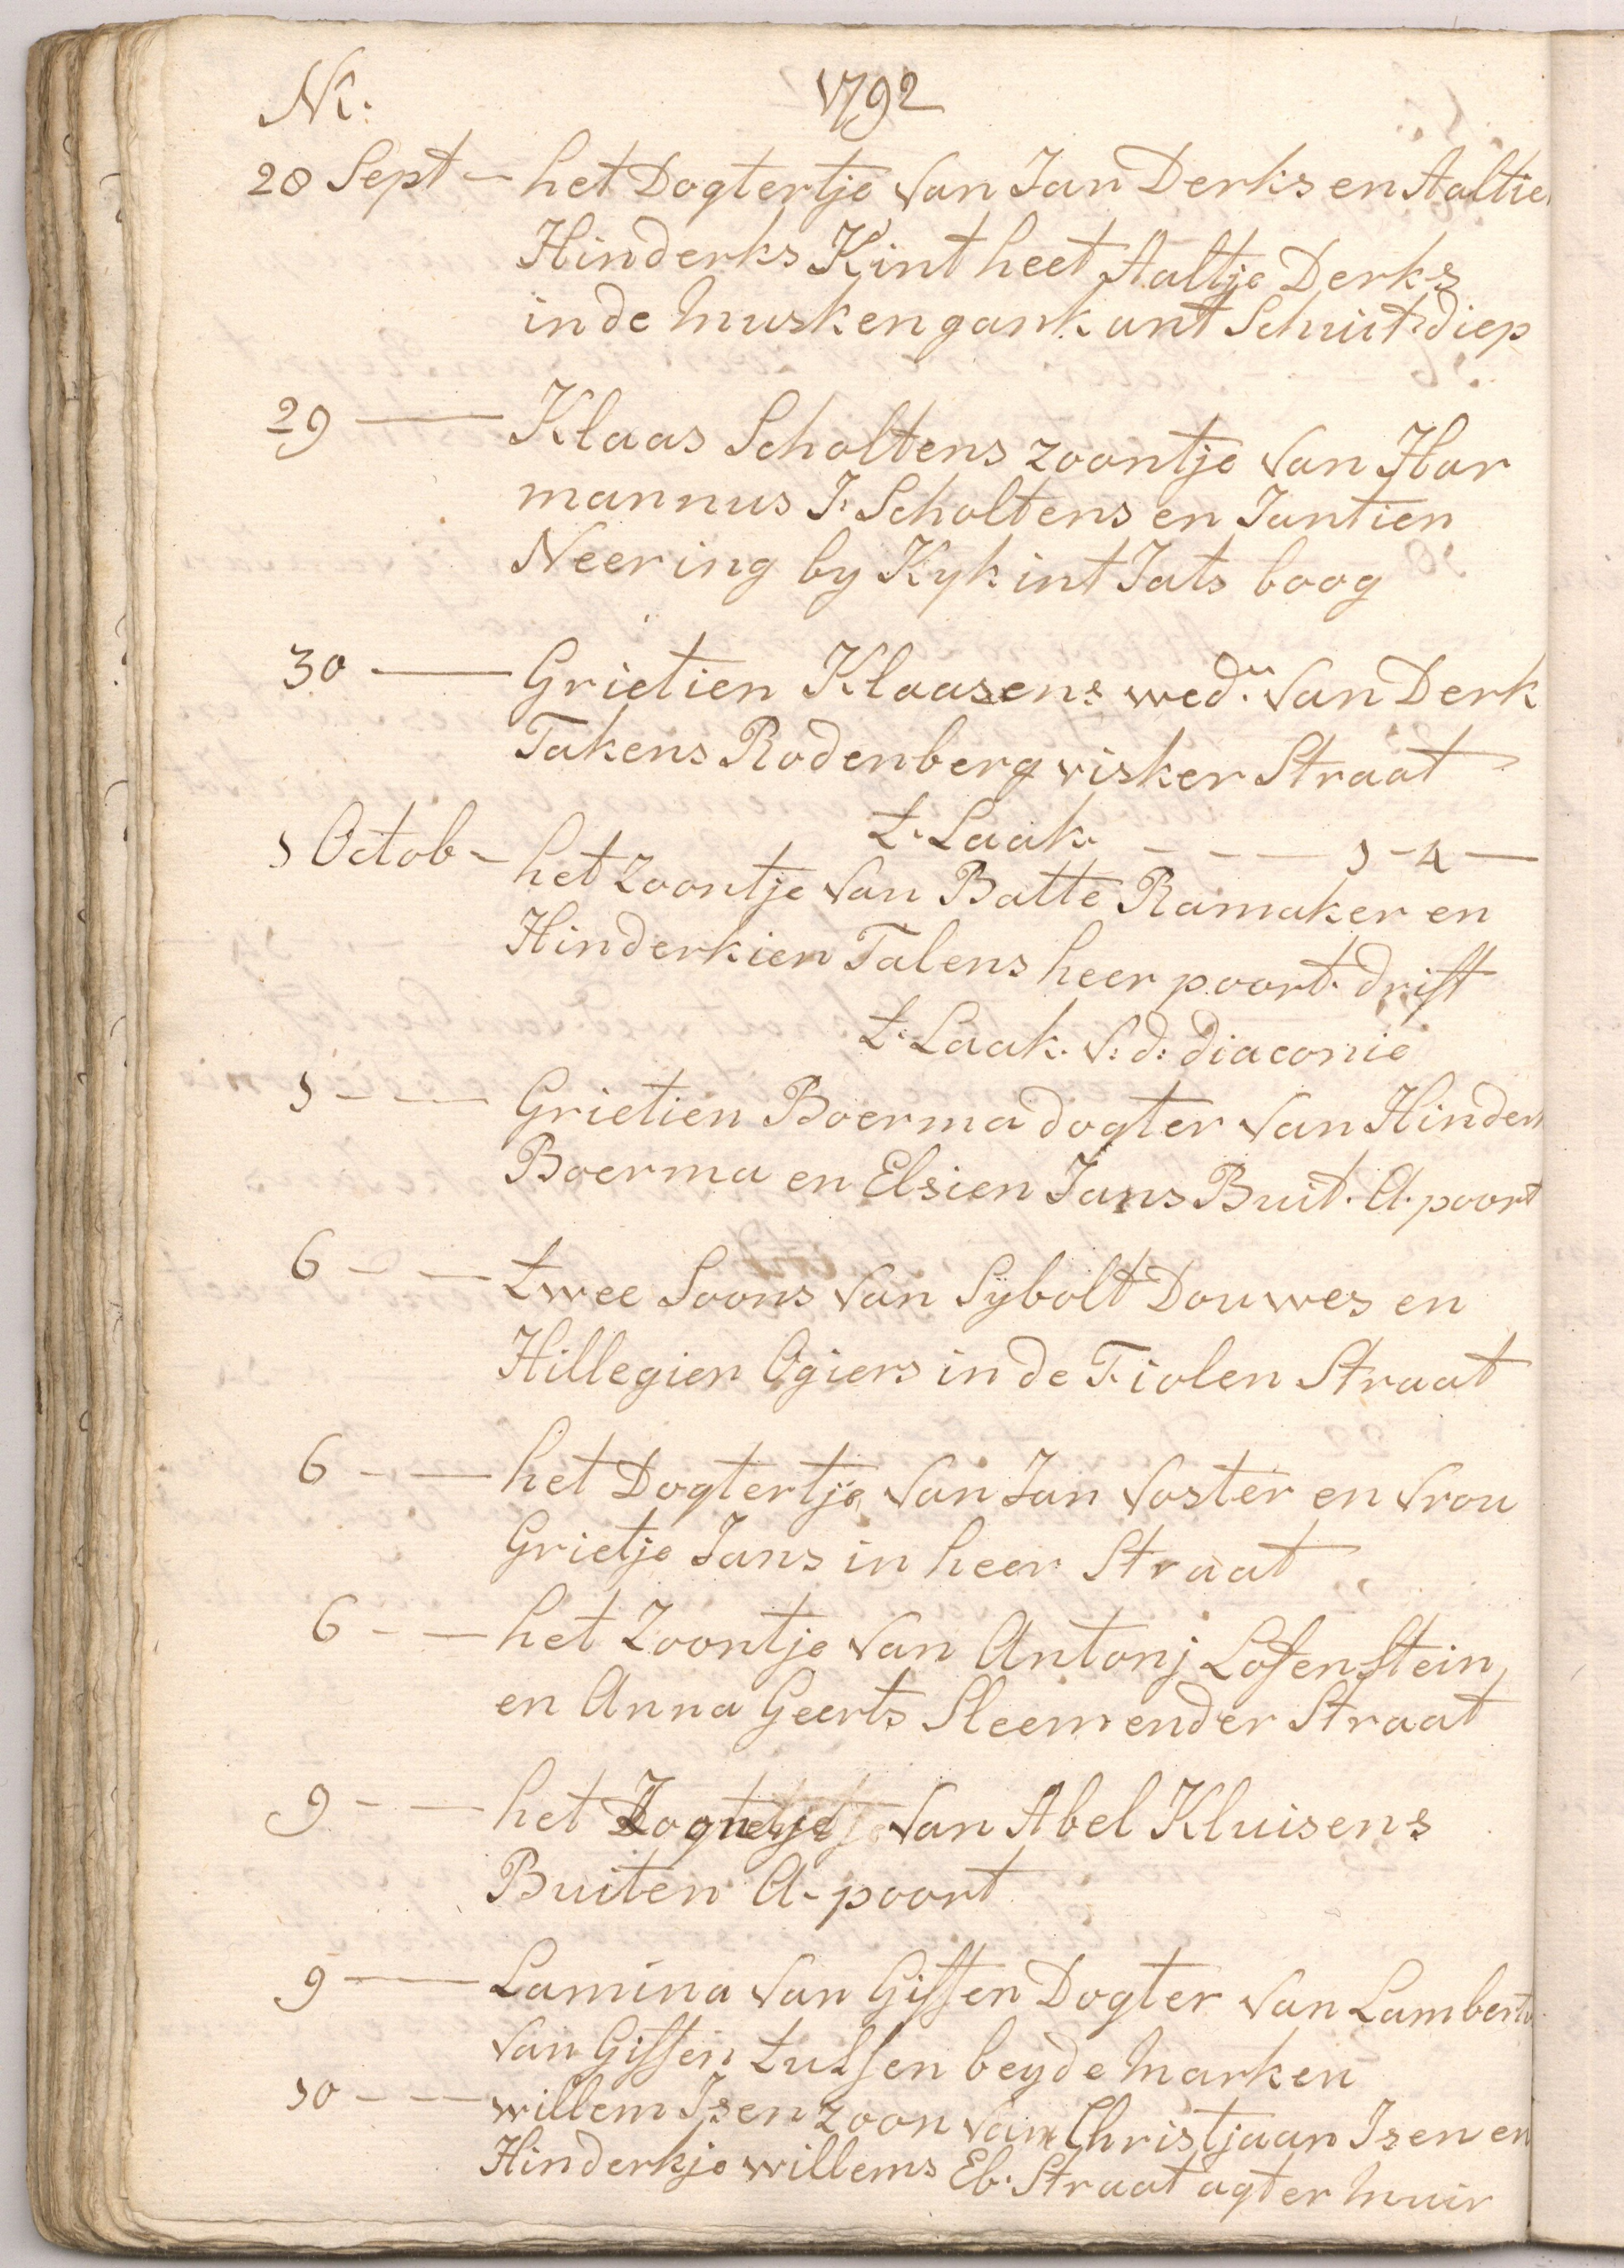 N:
1792
28 Sept - het Dogtertje van Jan Derks en Aaltie
Hinderks Kint heet Aaltje Derks
in de muskengank ant Schuit diep
29 — Klaas Scholtens zoontje van Har
mannus J. Scholtens en Jantien
Neering by Kyk int Jats boog
30 — Grietien Klaasens wedr. van Derk
Takens Rodenberg visker Straat
t. Laak. - - - 1 - 4 -
1 Octob - het zoontje van Batte Ramaker en
Hinderkien Talens heer poort. drift
t. Laak. v: d: diaconie
1 - - Grietien Boerma dogter van Hinder
Boerma en Elsien Jans Buit. A. poort
6 - - twee Soons van Sybolt Douwes en
Hillegien Ogiers in de Fiolen Straat
6 - - het Dogtertje van Jan Voster en vrou
Grietje Jans in heer Straat
6 - - het Zoontje van Antonj Lofenstein
en Anna Geerts Sleemender Straat
9 - - het van Abel Kluisens
Buiten A. poort
9 — Lamina van Gissen Dogter van Lambert
van Gissen tussen beyde marken
10 - - willem Isen zoon van Christjaan Isen en
Hinderkje willems Eb. Straat agter muir